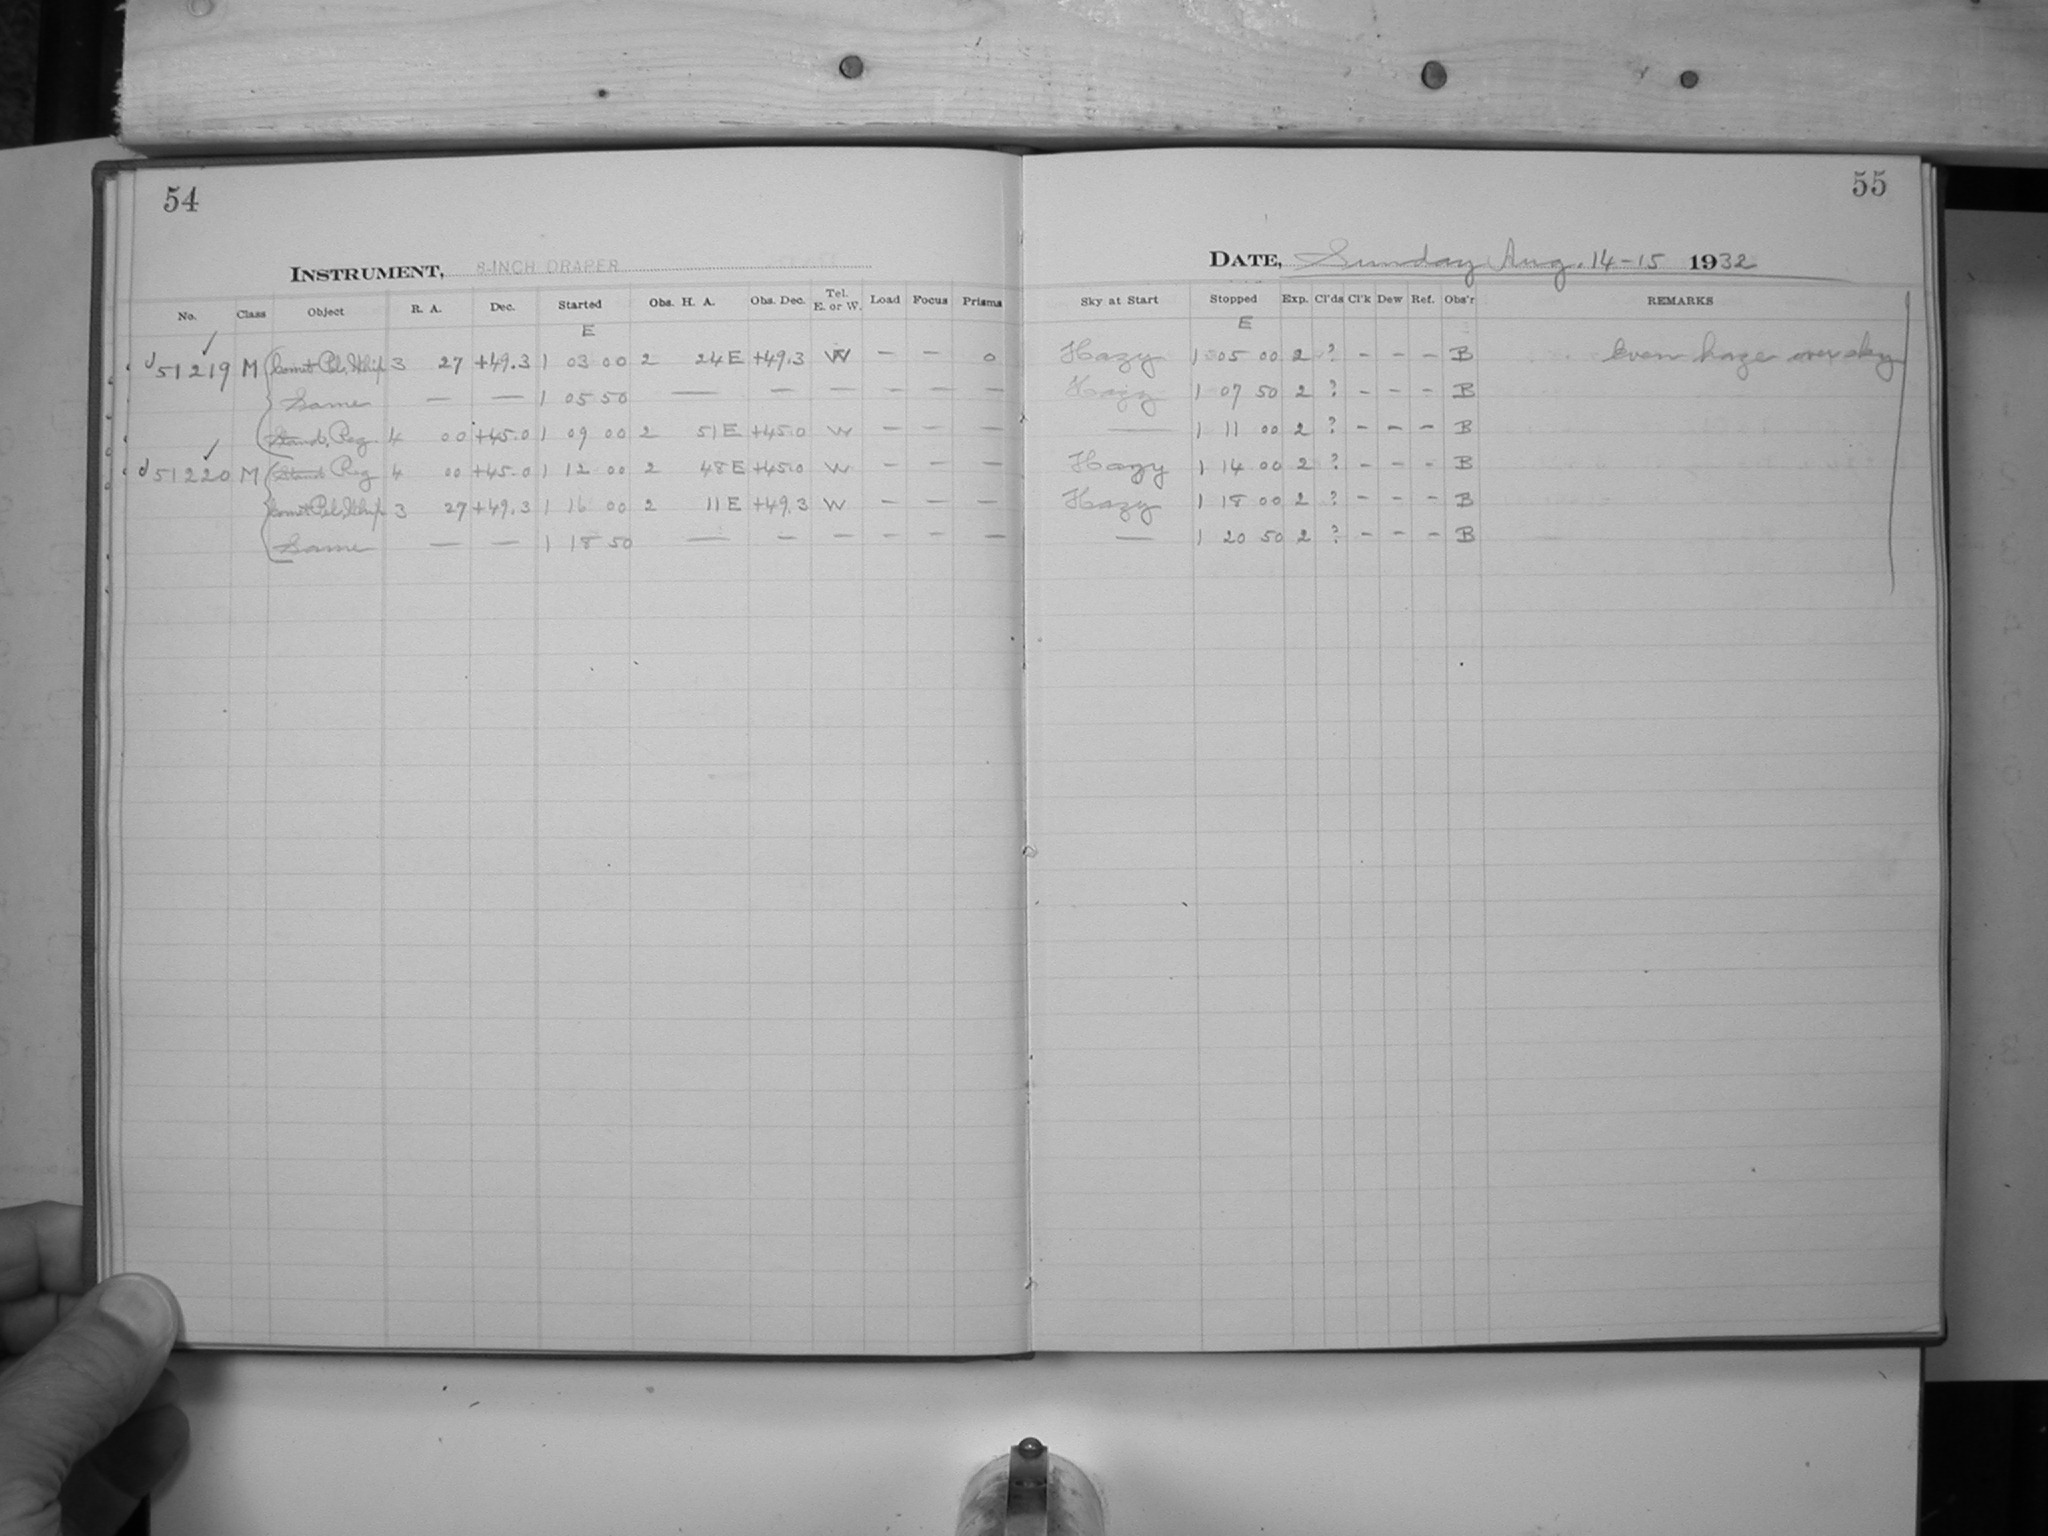 54
INSTRUMENT, 8-INCH DRAPER
No. Class Object R. A. Dec. Started Obs. H. A. Obs. Dec. Tel. E. or W. Load Focus Prisms
E
d51219 M Comet Pel. Whip 3 27 +49.3 1 03 00 2 24 E +49.3 W — — 0
Same — — 1 05 50 — — — — — —
Stand. Reg. 4 00 +45.0 1 09 00 2 51 E +45.0 W — — —
d51220 M Stand Reg 4 00 +45.0 1 12 00 2 48 E +45.0 W — — —
Comet Pel. Whip 3 27 +49.3 1 16 00 2 11 E +49.3 W — — —
Same — — 1 18 50 — — — — — —
55
DATE, Sunday Aug. 14-15 1932
Sky at Start Stopped Exp. Cl'ds Cl'k Dew Ref. Obs'r REMARKS
E
Hazy 1 05 00 2 ? – – – B Even haze over sky
Hazy 1 07 50 2 ? – – – B
— 1 11 00 2 ? – – – B
Hazy 1 14 00 2 ? – – – B
Hazy 1 18 00 2 ? – – – B
— 1 20 50 2 ? – – – B